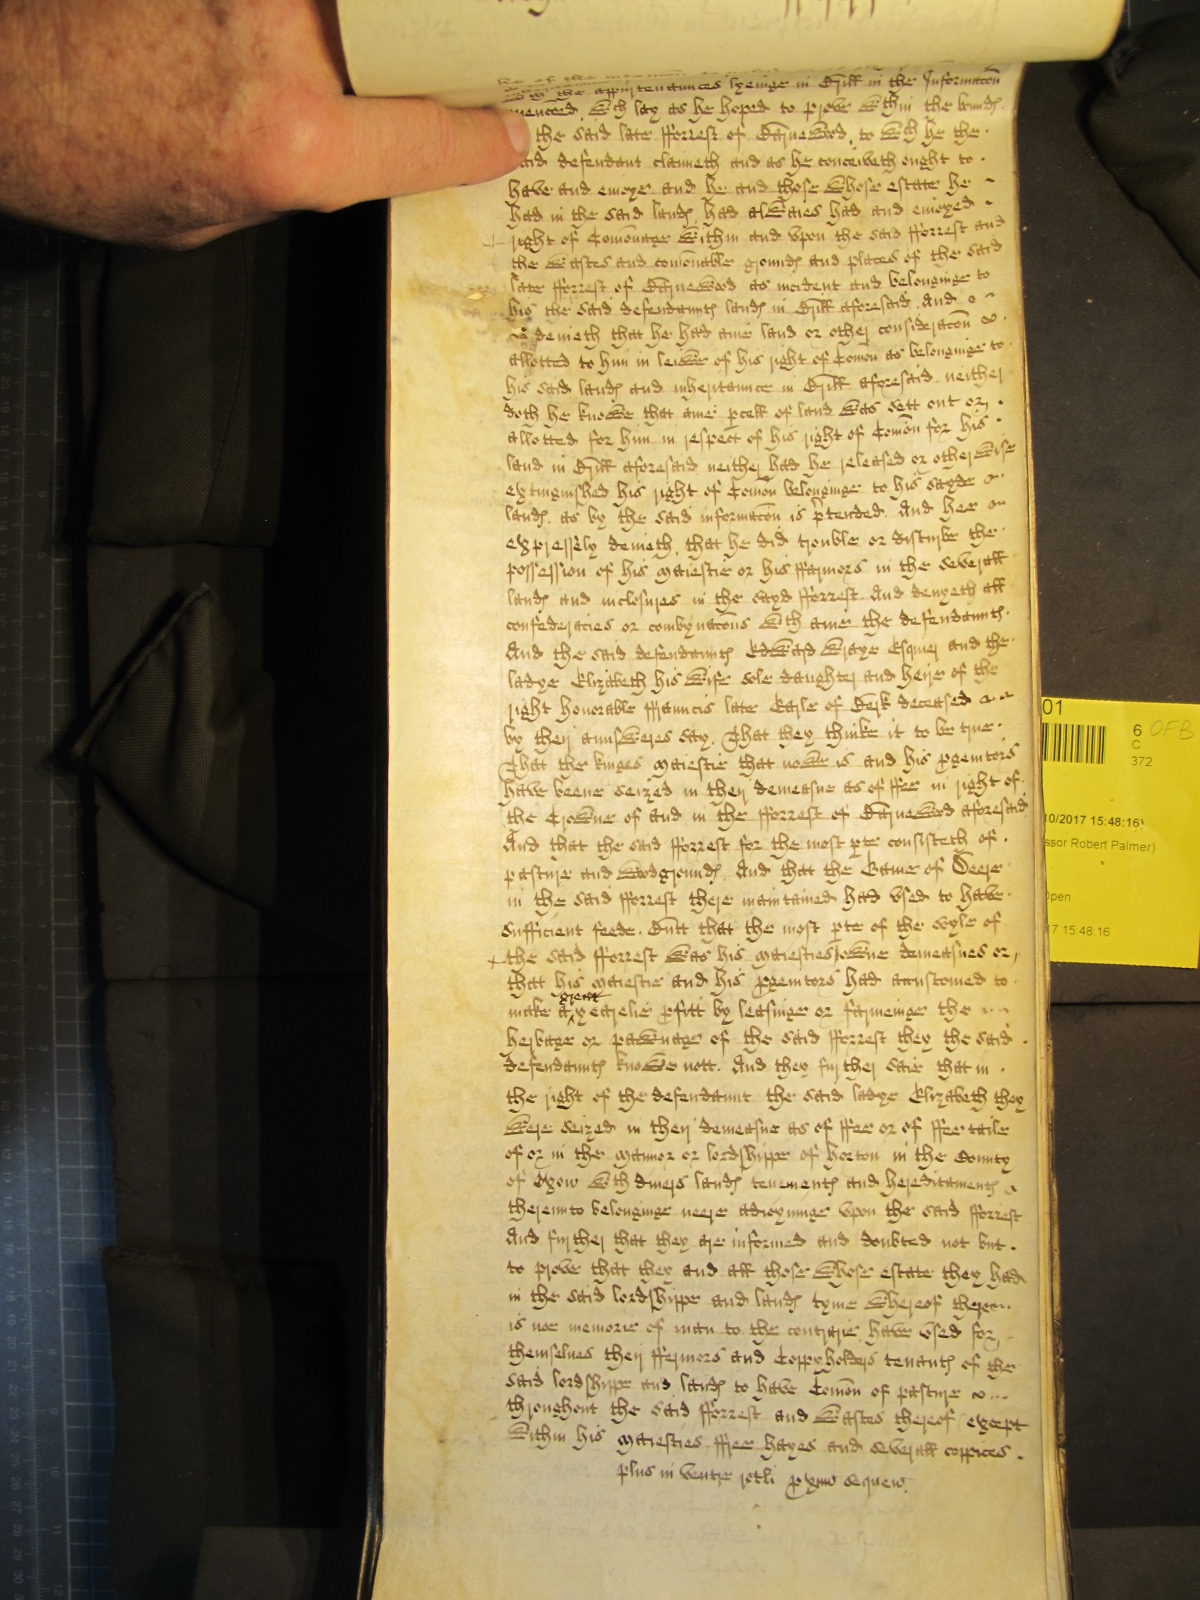 wth the appurtenances lyeinge in Brill in the Informacōn
menc̄oned, wch lay as he hoped to prove wthin the bounds
the said late fforrest of B̄arnewood, to wch he the
said defendant claimeth and as he conceiveth ought to
have and enioye and he and those whose estate he
had in the said lands had alwaies had and enioyed
right of Com̄onage within and vpon the said fforrest and
the wastes and com̄onable grounds and places of the said
late fforrest of B̄arnewood as incident and belonginge to
his the said defendaunts lands in Brill aforesaid. And
denieth that he had anie land or other considerac̄on
allotted to him in leiwe of his right of Com̄on as belonginge to
his said lands and inheritannce in Brill aforesaid neither
doth he knowe that anie pcell of land was sett out or
allotted for him in respect of his right of Com̄on for his
land in Brill aforesaid neither had he released or otherwise
extinguished his right of Com̄on belonginge to his sayde
lands, as by the said informac̄on is p̄tended. And hee
expressly denieth, that he did trouble or disturbe the
possession of his Maiestie or his ffarmors in the severall
lands and inclosures in the sayd fforrest. And denyeth all
confederacies or combynac̄ons wth anie the defendaunts.
And the said defendaunts Edward Wraye Esquier and the
ladye Elizabeth his wife sole daughter and heire of the
right honorable ffrauncis late Earle of Berk deceased
by their aunsweres say, That they thinke it to be true
That the kinges Maiestie that nowe is and his pgenitors
have beene seized in their demeasne as of ffee in right of
the Crowne of and in the fforrest of B̄arnewood aforesaid
And that the said fforrest for the most pte consisteth of
pasture and woodgrounds. And that the Game of Deere
in the said fforrest there maintained had vsed to have
sufficient feede. Butt that the most pte of the soyle of
the said fforrest was his Maiesties owne demeasnes or
that his Maiestie and his pgenitors had accustomed to
great
make a yearelie pfitt by leasinge or farmeinge the
herbage or pawnage of the said fforrest they the said
defendaunts knowe nott. And they further saie that in
the right of the defendaunt the said ladye Elizabeth they
were seized in their demeasne as of ffee or of ffee taile
of or in the mannor or lordshippe of horton in the County
of Oxon wth divers lands tenements and hereditaments
thereunto belonginge neere adioyninge vpon the said fforrest
And further that they are informed and doubted not but
to prove that they and all those whose estate they had
in the said lordshippe and lands tyme whereof there
is noe memorie of man to the contrarie have vsed for
themselues their ffermors and Coppyholders tenants of the
said lordshippe and lands to have Com̄on of pasture
throughout the said fforrest and wastes thereof except
within his Maiesties ffee hayes and severall coppices
plus in ventre rotli pximo sequen
01
6
OFB
C
372
10/2017 15:48:16
ssor Robert Palmer)
Open
17 15:48:16